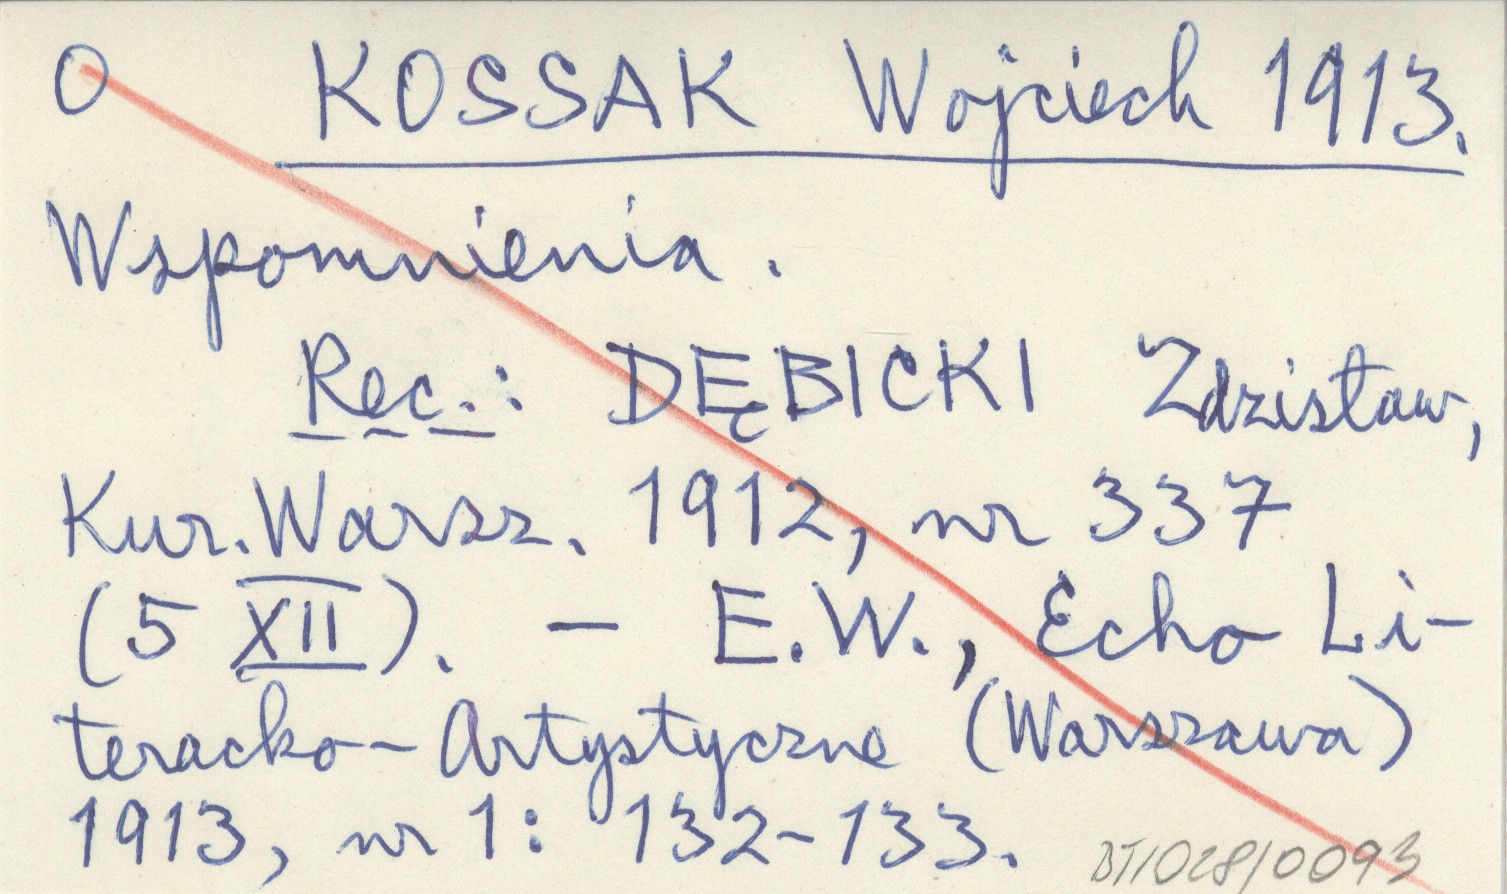 O KOSSAK Wojciech 1913.
Wspomnienia.
Rec.: DĘBICKI Zdzisław,
Kur. Warsz. 1912, nr 337
(5 XII). – E.W., Echo Li-
teracko-Artystyczne (Warszawa)
1913, nr 1: 132-133.
BT/028/0093